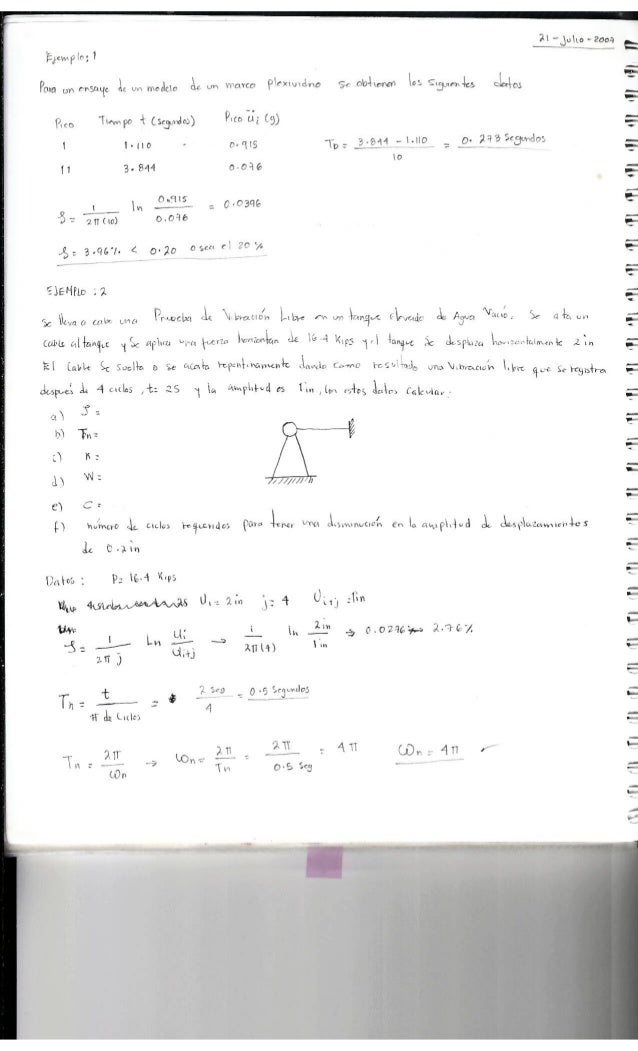 21 - Julio - 2009
Ejemplo: 1
Para un ensaye de un modelo de un marco plexividrio se obtienen los siguientes datos
Pico Tiempo t (segundos) Pico üi (g)
1 1.110 0.915
11 3.844 0.076
TD = (3.844 - 1.110) / 10 = 0.273 segundos
ξ = 1 / 2π(10) ln 0.915 / 0.076 = 0.0396
ξ = 3.96% < 0.20 o sea el 20 %
EJEMPLO : 2
Se lleva a cabo una Prueba de Vibración Libre en un tanque elevado de Agua Vacio. Se ata un
cable al tanque y se aplica una fuerza horizontan de 16.4 Kips y el tanque se desplaza horizontalmente 2 in
El Cable Se Suelta o se acorta repentinamente dando Como resultado una Vibración libre que se registra
después de 4 ciclos, t= 2S y la amplitud es 1in, con estos datos Calcular:
a) ξ =
b) Tn =
c) K =
d) W =
e) C =
f) número de ciclos requeridos para tener una disminución en la amplitud de desplazamientos
de 0.2 in
Datos : P= 16.4 Kips
Ui = 2 in j = 4 Ui+j = 1in
ξ = 1 / 2π j Ln Ui / Ui+j → 1 / 2π(4) ln 2in / 1in → 0.0276 → 2.76%
Tn = t / # de Ciclos = 2 seg / 4 = 0.5 Segundos
Tn = 2π / ωn → ωn = 2π / Tn = 2π / 0.5 seg = 4π ωn = 4π